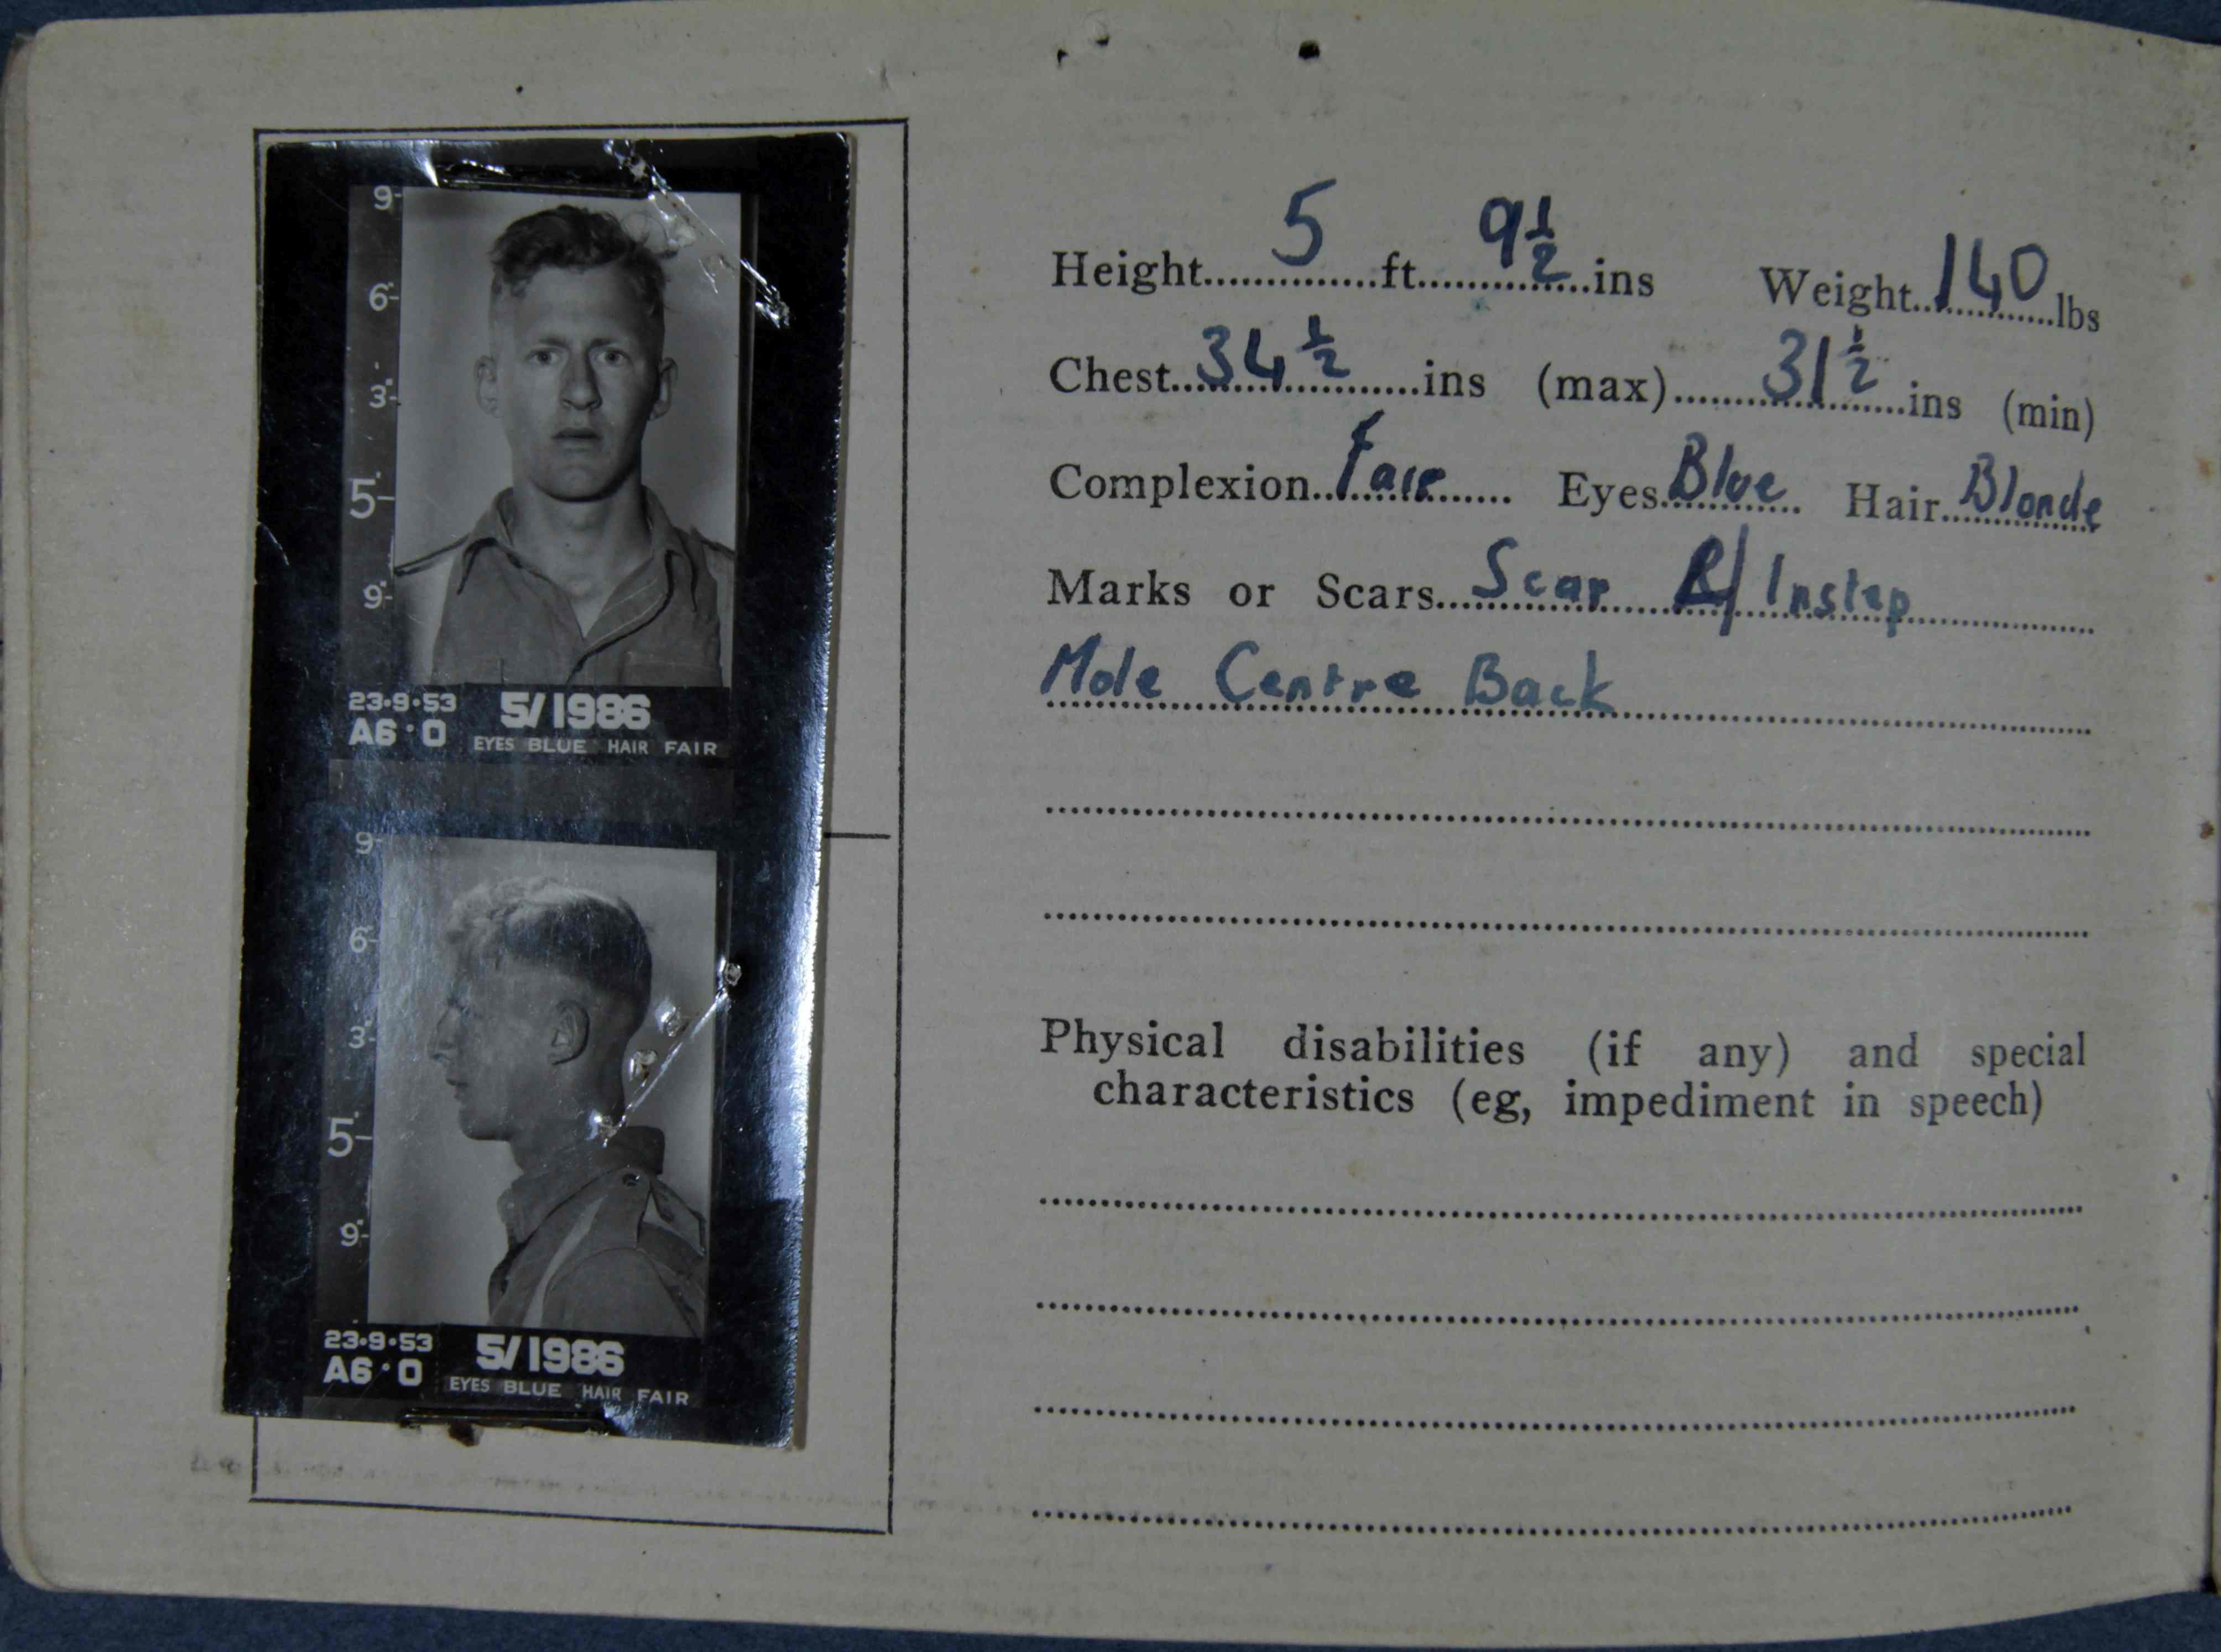 9-
6-
3-
5-
9-
23·9·53 5/1986
A6·0 EYES BLUE HAIR FAIR
9-
6-
3-
5-
9-
23·9·53 5/1986
A6·0 EYES BLUE HAIR FAIR
Height 5 ft 9½ ins Weight 140 lbs
Chest 34½ ins (max) 31½ ins (min)
Complexion Fair Eyes Blue Hair Blonde
Marks or Scars Scar R/ Instep
Mole Centre Back
Physical disabilities (if any) and special
characteristics (eg, impediment in speech)